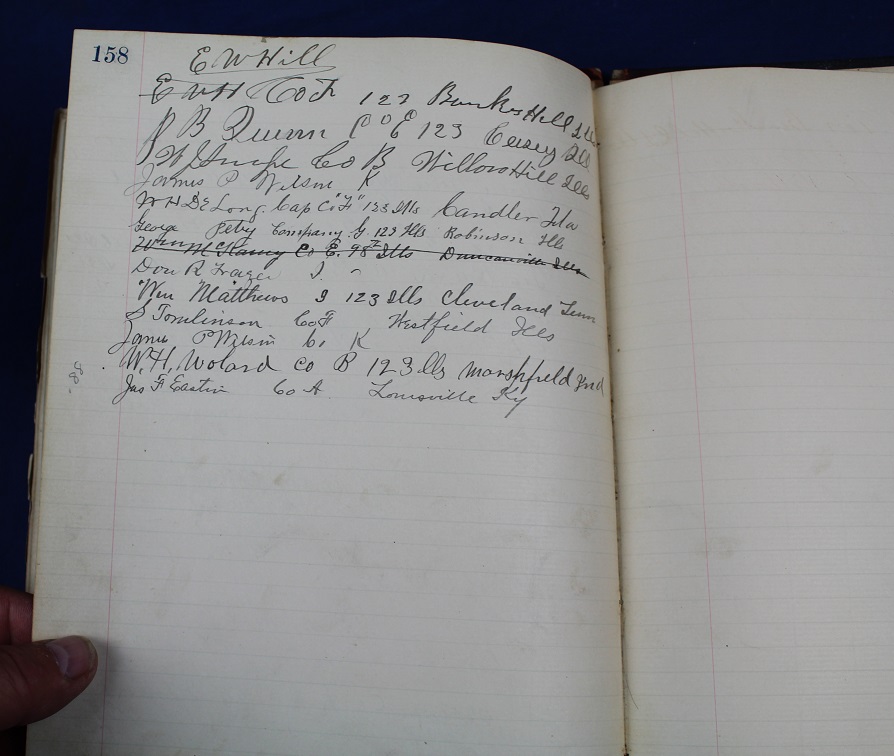 158
E W Hill
E W H Co F 123 Bunker Hill Ills
J B Quinn Co E 123 Casey Ills
Co B Willow Hill Ills
James P Wilson K
W H DeLong. Cap Co "F" 123 Ills Candler Fla
George Co Company G. 123 Ills Robinson Ills
Co E. 98th Ills Duncanville Ills
Don R Frazer I. "
Wm Matthews I 123 Ills Cleveland Tenn
S Tomlinson Co F Westfield Ills
James P Wilson Co K
W. H. Wolard Co B 123 Ills Marshfield Ind
Jas F Eastin Co A Louisville Ky